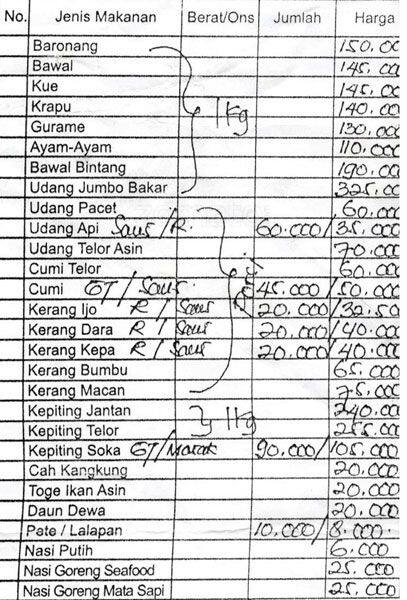 No. Jenis Makanan Berat/Ons Jumlah Harga
Baronang 150.00
Bawal 145.000
Kue 145.00
Krapu 1 Kg 140.00
Gurame 130.000
Ayam-Ayam 110.000
Bawal Bintang 190.00
Udang Jumbo Bakar 325.00
Udang Pacet 60.000
Udang Api Saus / R. 60.000/35.000
Udang Telor Asin 70.000
Cumi Telor Porsi 60.000
Cumi GT / Saus. 45.000/50.000
Kerang Ijo R / Saus 20.000/32.50
Kerang Dara R / Saus 20.000/40.00
Kerang Kepa R / Saus 20.000/40.00
Kerang Bumbu 65.000
Kerang Macan 75.000
Kepiting Jantan 1 Kg 240.00
Kepiting Telor 255.00
Kepiting Soka GT/ 90.000/105.000
Cah Kangkung 20.000
Toge Ikan Asin 20.000
Daun Dewa 20.000
Pete / Lalapan 10.000/8.000.
Nasi Putih 6.000
Nasi Goreng Seafood 25.000
Nasi Goreng Mata Sapi 25.000